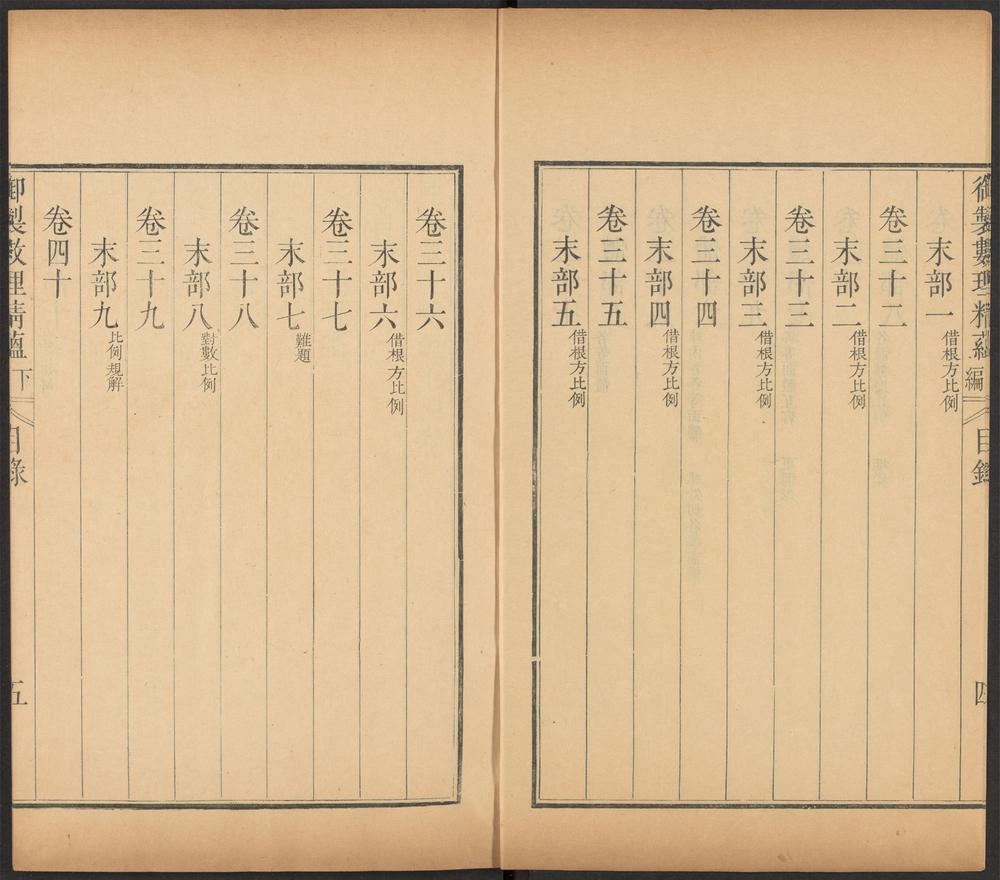 御製數理精蘊 編 目錄 四
末部一 借根方比例
卷三十二
末部二 借根方比例
卷三十三
末部三 借根方比例
卷三十四
末部四 借根方比例
卷三十五
末部五 借根方比例
卷三十六
末部六 借根方比例
卷三十七
末部七 難題
卷三十八
末部八 對數比例
卷三十九
末部九 比例規解
卷四十
御製數理精蘊 下 目錄 五